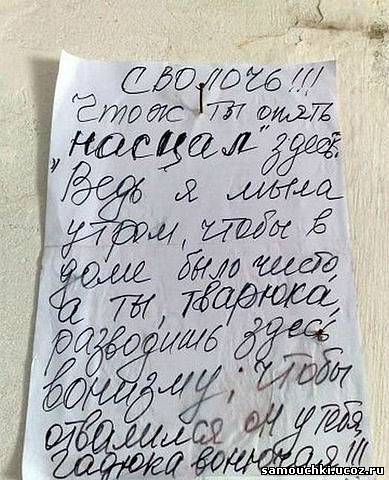 СВОЛОЧЬ!!!
Чтож ты опять
„насцал" здесь.
Ведь я мыла
утром, чтобы в
доме было чисто,
а ты, тварюка,
разводишь здесь
вонизму; чтобы
отвалился он у тебя,
гадюка вонючая!!!
samouchki.ucoz.ru